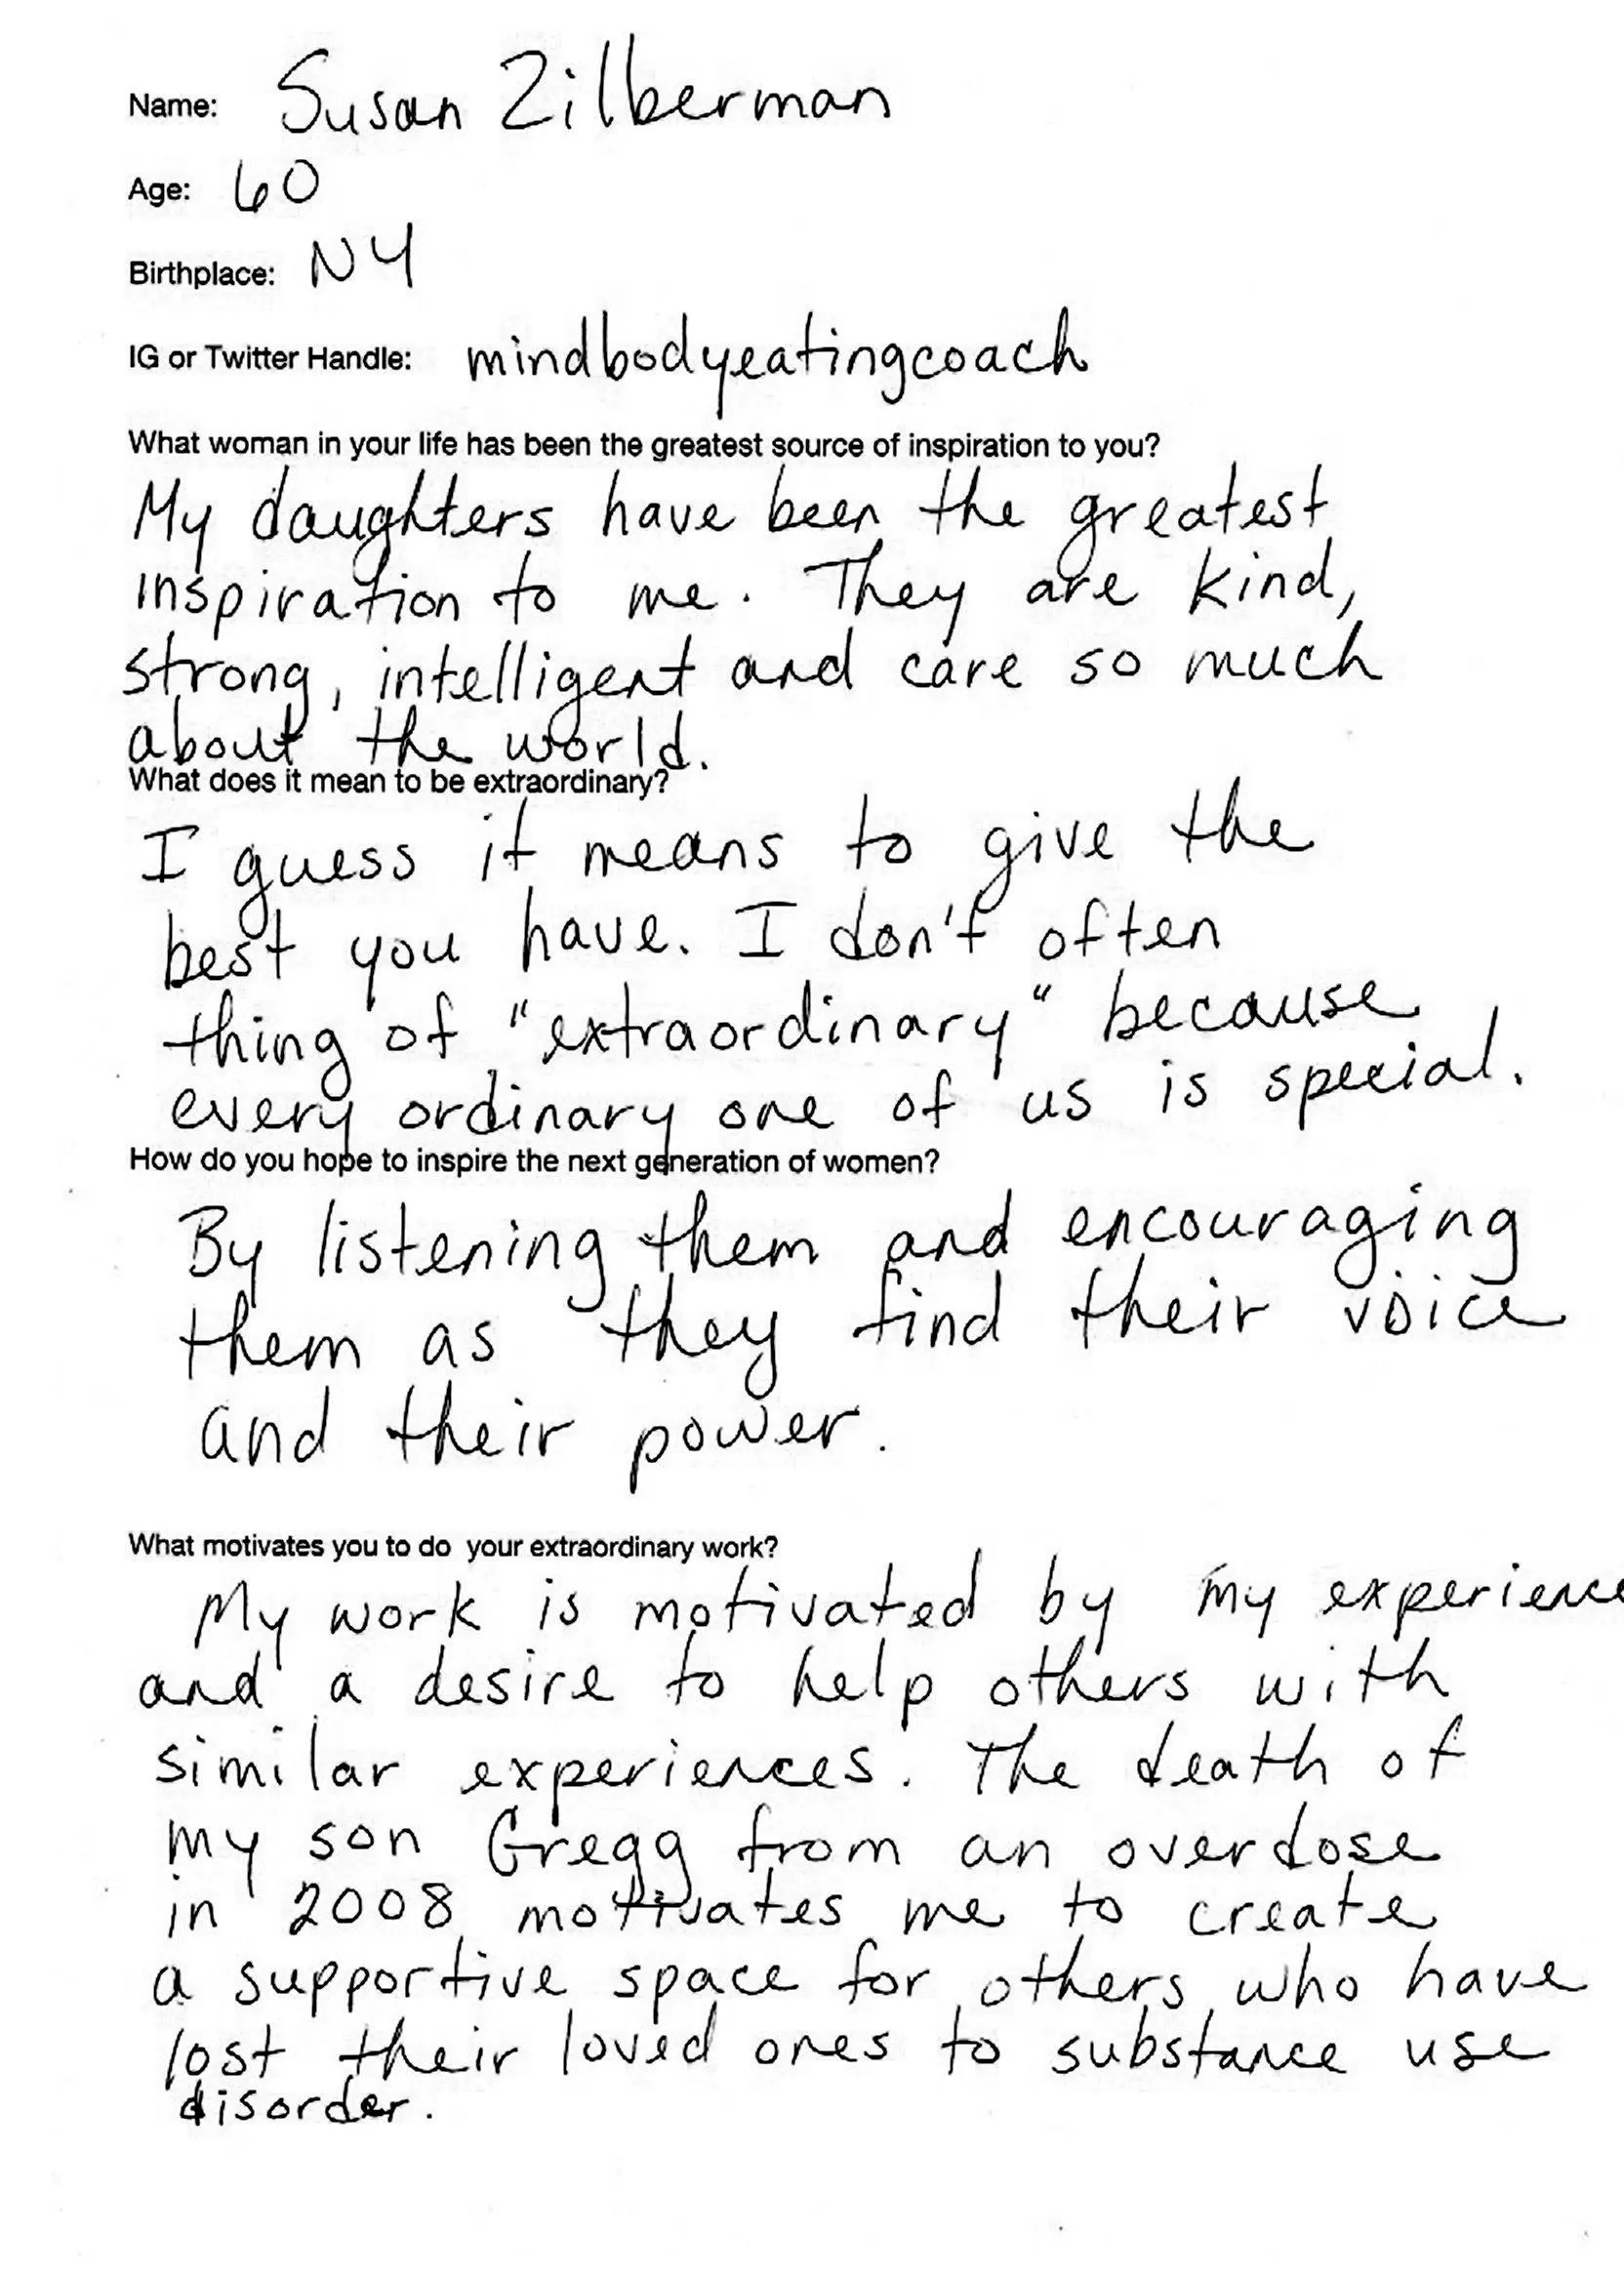 Name: Susan Zilberman
Age: 60
Birthplace: NY
IG or Twitter Handle: mindbodyeatingcoach
What woman in your life has been the greatest source of inspiration to you?
My daughters have been the greatest
inspiration to me. They are kind,
strong, intelligent and care so much
about the world.
What does it mean to be extraordinary?
I guess it means to give the
best you have. I don't often
thing of "extraordinary" because
every ordinary one of us is special.
How do you hope to inspire the next generation of women?
By listening them and encouraging
them as they find their voice
and their power.
What motivates you to do your extraordinary work?
My work is motivated by my experience
and a desire to help others with
similar experiences. The death of
my son Gregg from an overdose
in 2008 motivates me to create
a supportive space for others who have
lost their loved ones to substance use
disorder.